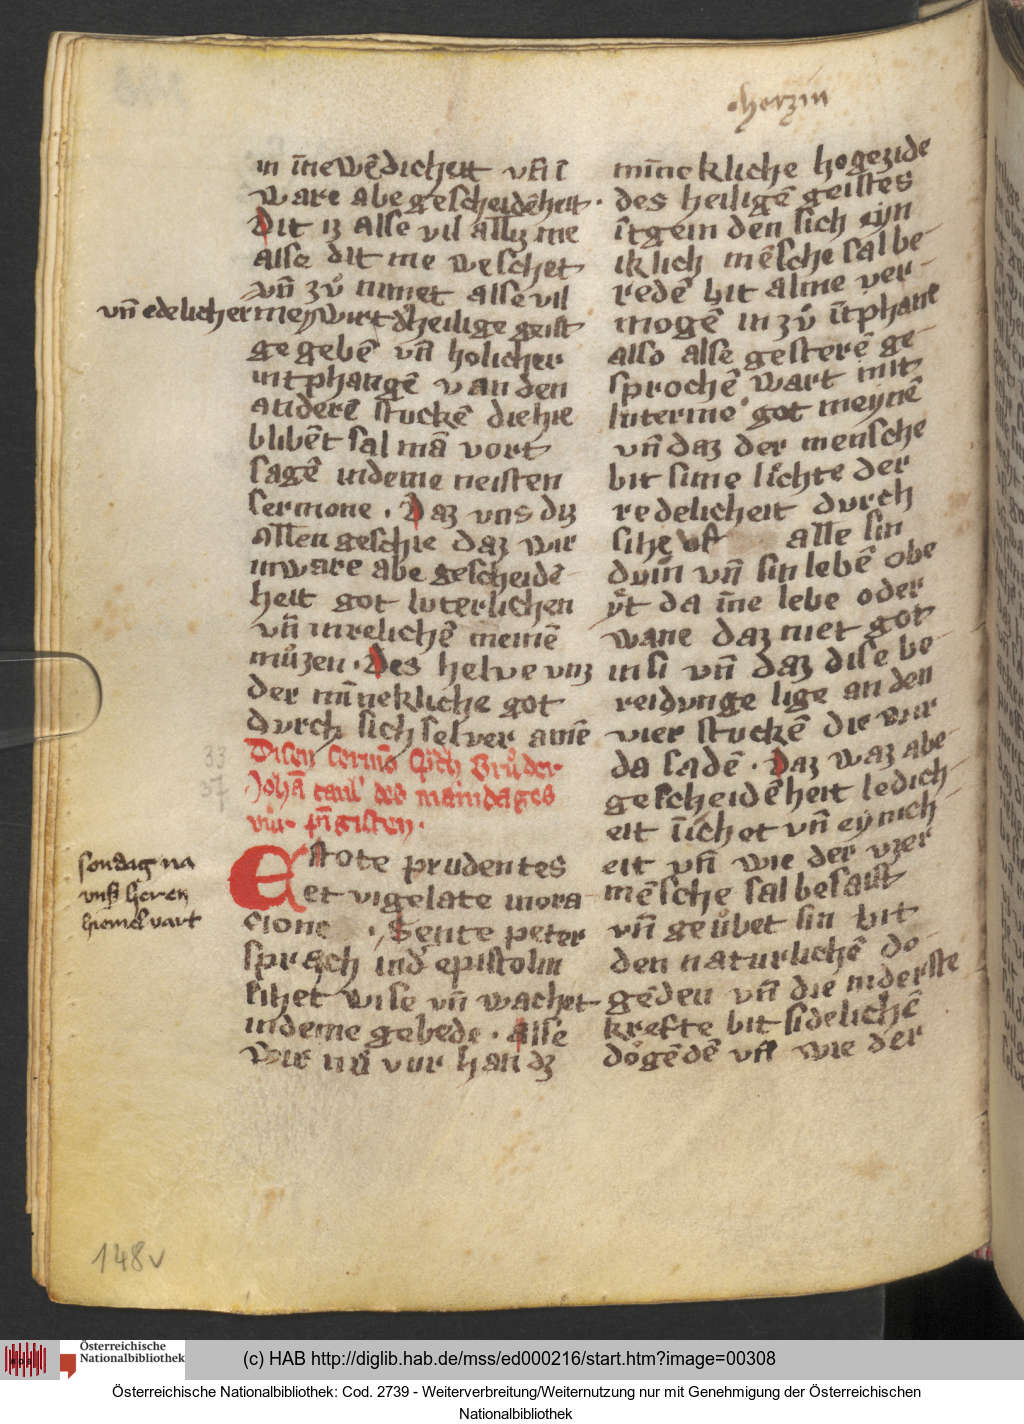 herzin
in īnewēdicheit vn̄ ī
ware abegescheidēheit.
Dit iz alse vil alliz me
alse dit me weschet
vn̄ zů nimet alse vil
vn̄ edelicher me wirt d' heilige geist
gegebē vn̄ holicher
intphangē van den
anderē stuckē die hie
blibēt sal mā vort
sagē in deme neisten
sermone. Daz vns diz
allen geschie daz wir
in ware abe gescheidē
heit got luterlichen
vn̄ inrelichē meinē
můzen. Des helve vnz
der mīnekliche got
durch sich selver amē
Disen sermō sprich Brůder
Johā taul' des maindages
vůr pīgisten.
Estote prudentes
et vigelate inora
cione. Sente peter
sprach in d' epistolin
sihet wise vn̄ wachet
in deme gebede. Alse
wir nů vur handz
mīnekliche hogezide
des heiligē geistes
ītgein den sich eyn
iklich mēsche sal be
redē bit alme ver
mogē in zů ītphane
also alse gesterē ge
sprochē wart mit
luterme got meynē
vn̄ daz der mensche
bit sime lichte der
redelicheit durch
sihe of alle sin
důin vn̄ sin lebē obe
yt da īne lebe oder
wane daz niet got
in si vn̄ daz dise be
reidunge lige an den
vier stuckē die wir
da sadē. Daz waz abe
gescheidēheit ledich
eit īichet vn̄ eynich
eit vn̄ wie der vzer
mēsche sal besast
vn̄ geůbet sin bit
den naturlichē do
gēden vn̄ die niderste
krefte bit sidelichē
dogēdē vn̄ wie der
33
37
sondag na
vnß heren
hiemelvart
148v
Österreichische
Nationalbibliothek
(c) HAB http://diglib.hab.de/mss/ed000216/start.htm?image=00308
Österreichische Nationalbibliothek: Cod. 2739 - Weiterverbreitung/Weiternutzung nur mit Genehmigung der Österreichischen
Nationalbibliothek